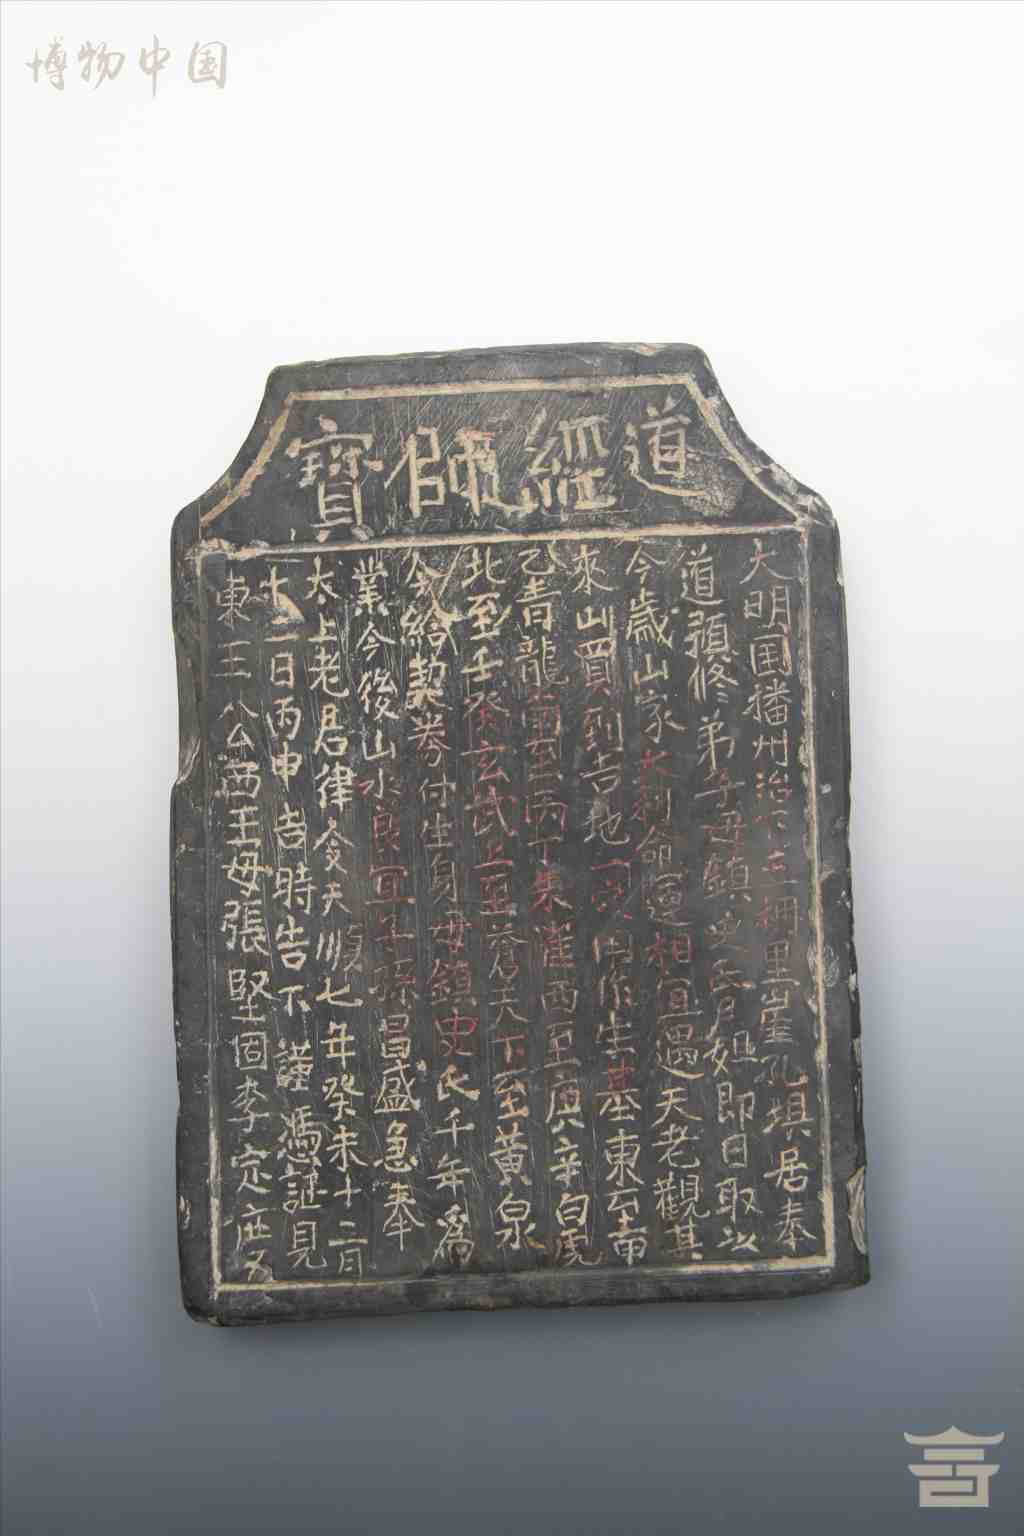 博物中国
道經師寶
大明国播州治下三捫里崖孔填居奉
道預修弟子母鎮史氏月姐即日取以
今歲山家大利命運相宜遇天老觀其
來山買到吉地一穴用作生基東至甲
乙青龍南至丙丁朱雀西至庚辛白虎
北至壬癸玄武上至蒼天下至黃泉
今給契券付生身母鎮史氏千年爲
業今後山水良宜子孫昌盛急奉
太上老君律令天順七年癸未十二月
十二日丙申吉時告下 謹憑証見
東王公西王母張堅固李定